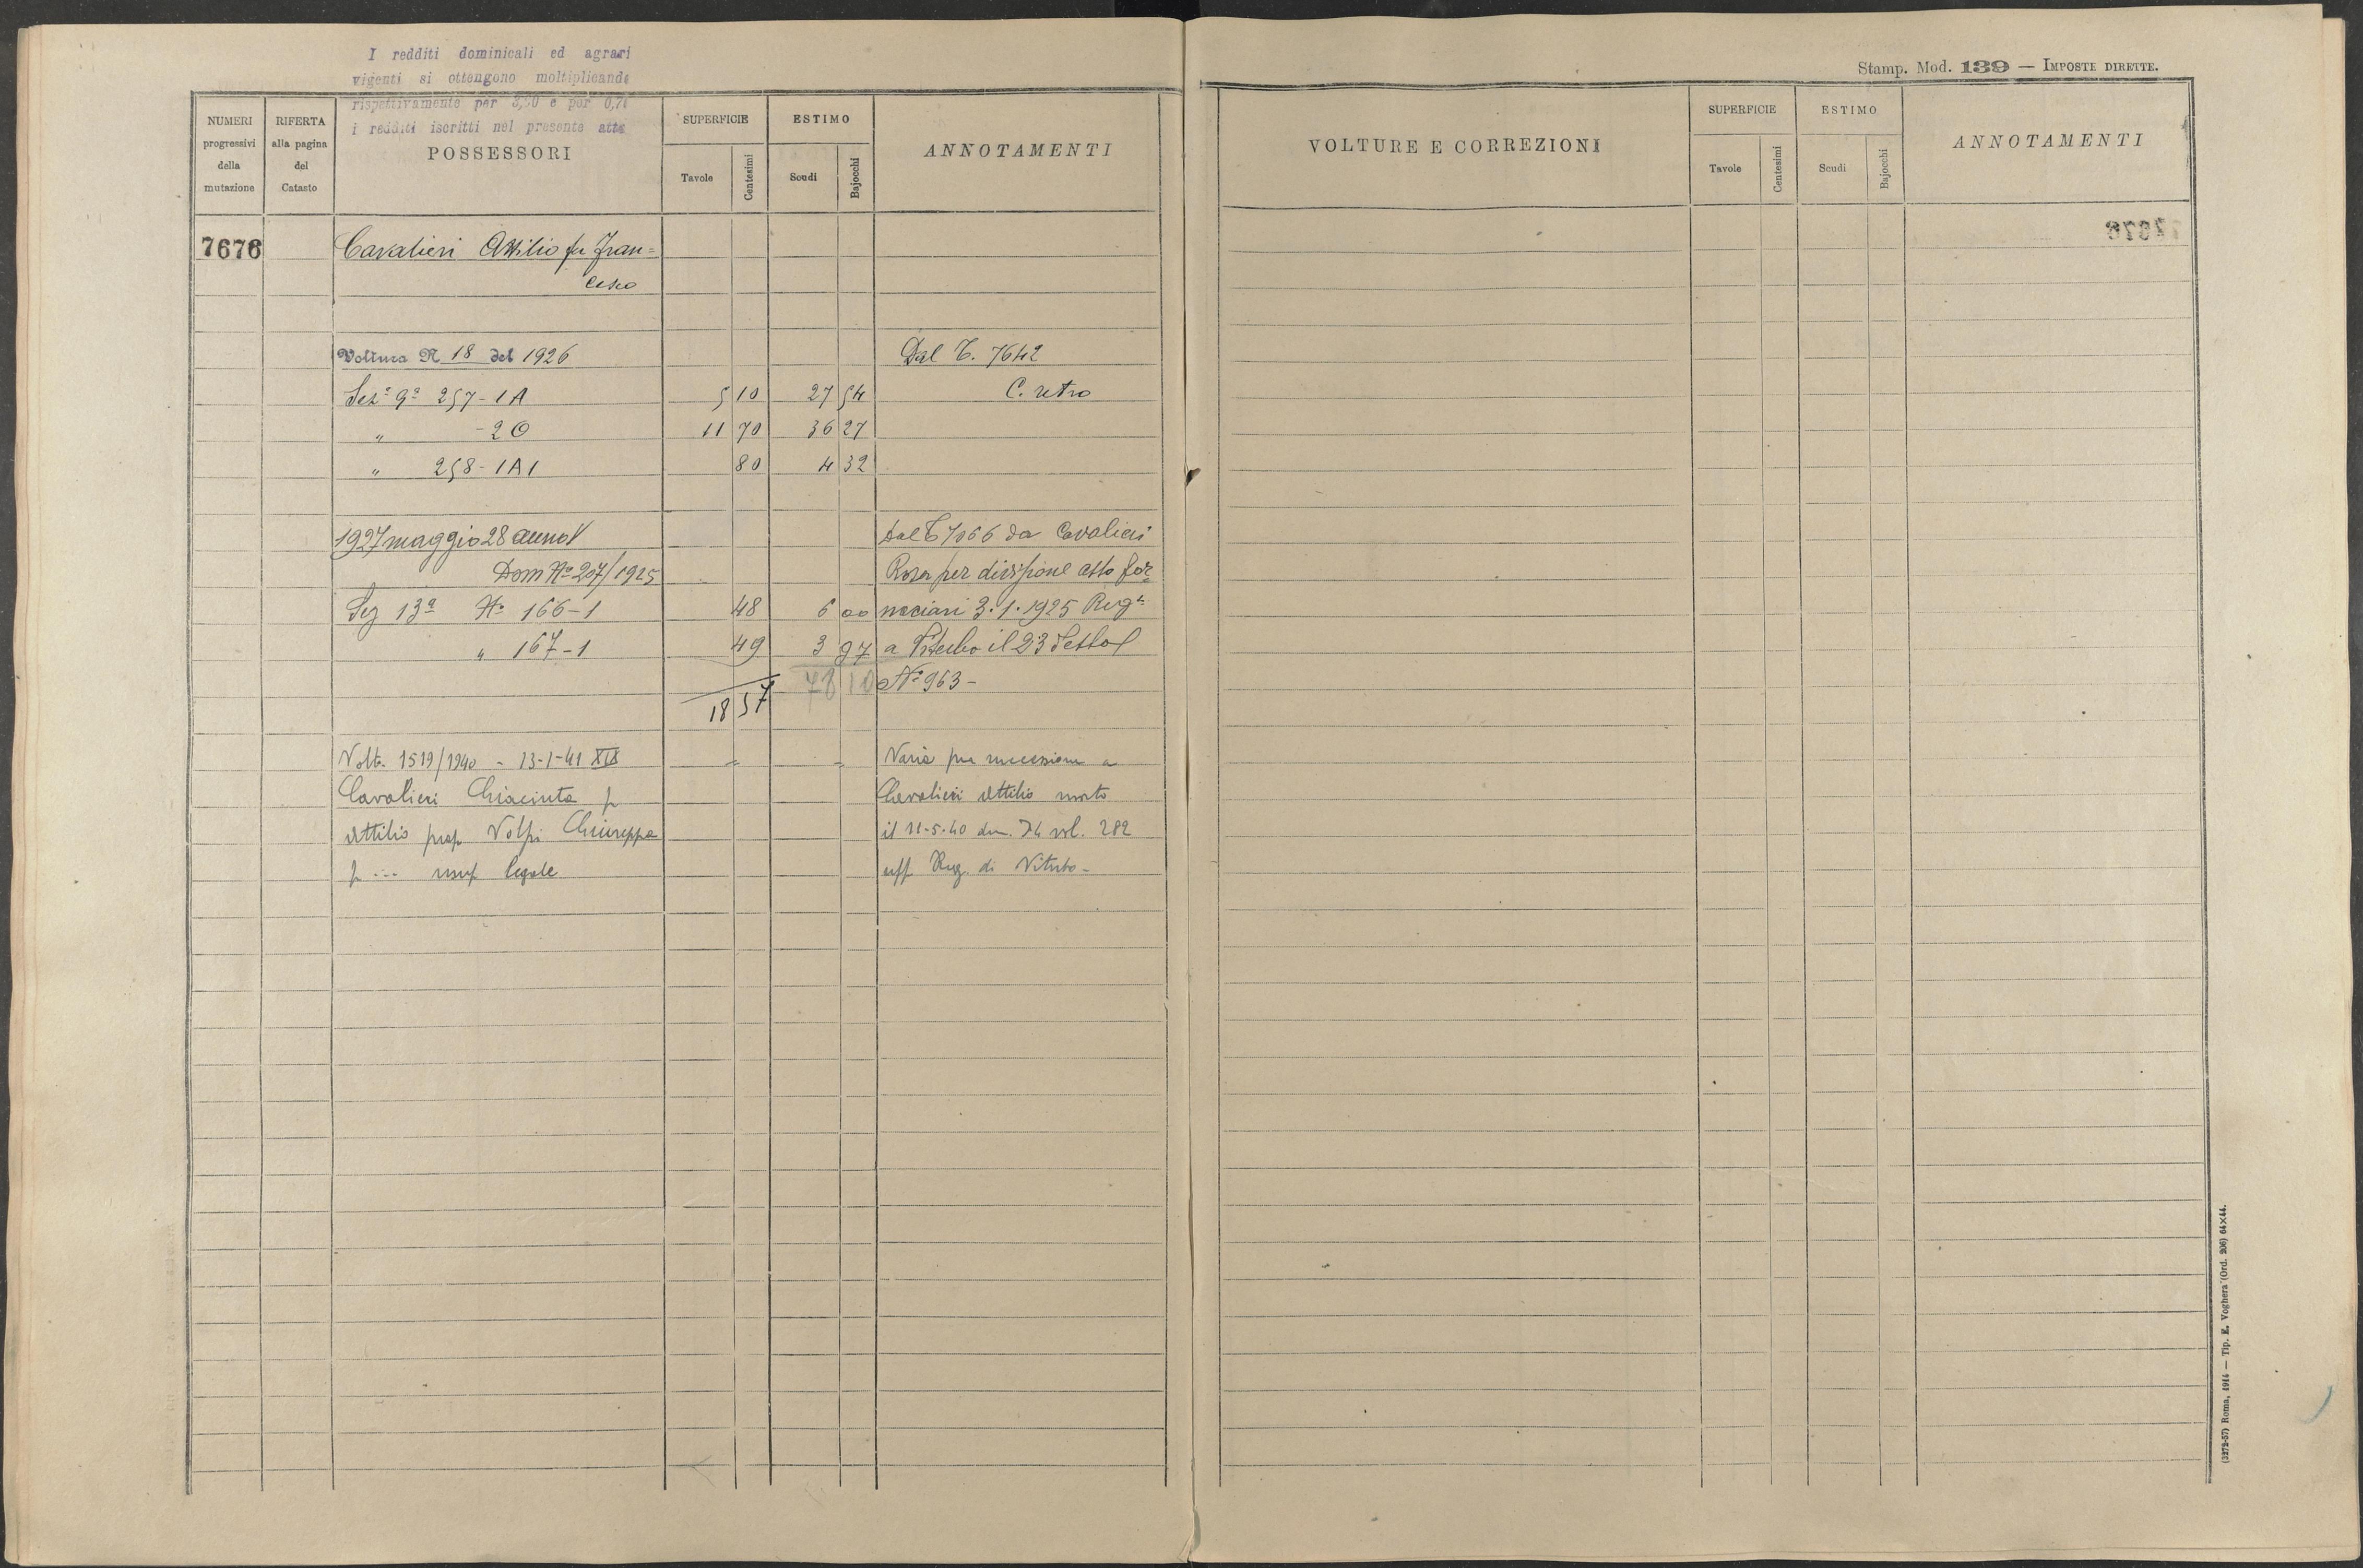 I redditi dominicali ed agrari
vigenti si ottengono moltiplicando
rispettivamente per 3,50 e per 0,7
i redditi iscritti nel presente atto
Stamp. Mod. 139 — IMPOSTE DIRETTE.
NUMERI progressivi della mutazione
RIFERTA alla pagina del Catasto
POSSESSORI
SUPERFICIE
Tavole Centesimi
ESTIMO
Scudi Bajocchi
ANNOTAMENTI
VOLTURE E CORREZIONI
SUPERFICIE
Tavole Centesimi
ESTIMO
Scudi Bajocchi
ANNOTAMENTI
7676 Cavalieri Attilio fu Fran=
cesco
Voltura N 18 del 1926 Dal T. 7642
Sezª 9ª 257-1A 5 10 27 54 C. retro
" -20 11 70 36 27
" 258-1A1 80 4 32
1927 maggio 28 anno V Dal T 7066 da Cavalieri
Dom Nº 207/1925 Rosa per divisione atto for=
Sez 13ª Nº 166-1 48 6 00 naciari 3.1.1925 Regº
" 167-1 49 3 97 a Viterbo il 23 detto
78 10 Nº 963-
18 57
Volt. 1519/1940 - 13-1-41 XIX - - Varia per successione a
Cavalieri Giacinta fu Cavalieri Attilio morto
Attilio prop Volpi Giuseppa il 11-5-40 den. 74 vol. 282
fu ... usuf legale uff Reg. di Viterbo-
(3272-57) Roma, 1914 — Tip. E. Voghera (Ord. 206) 64×44.